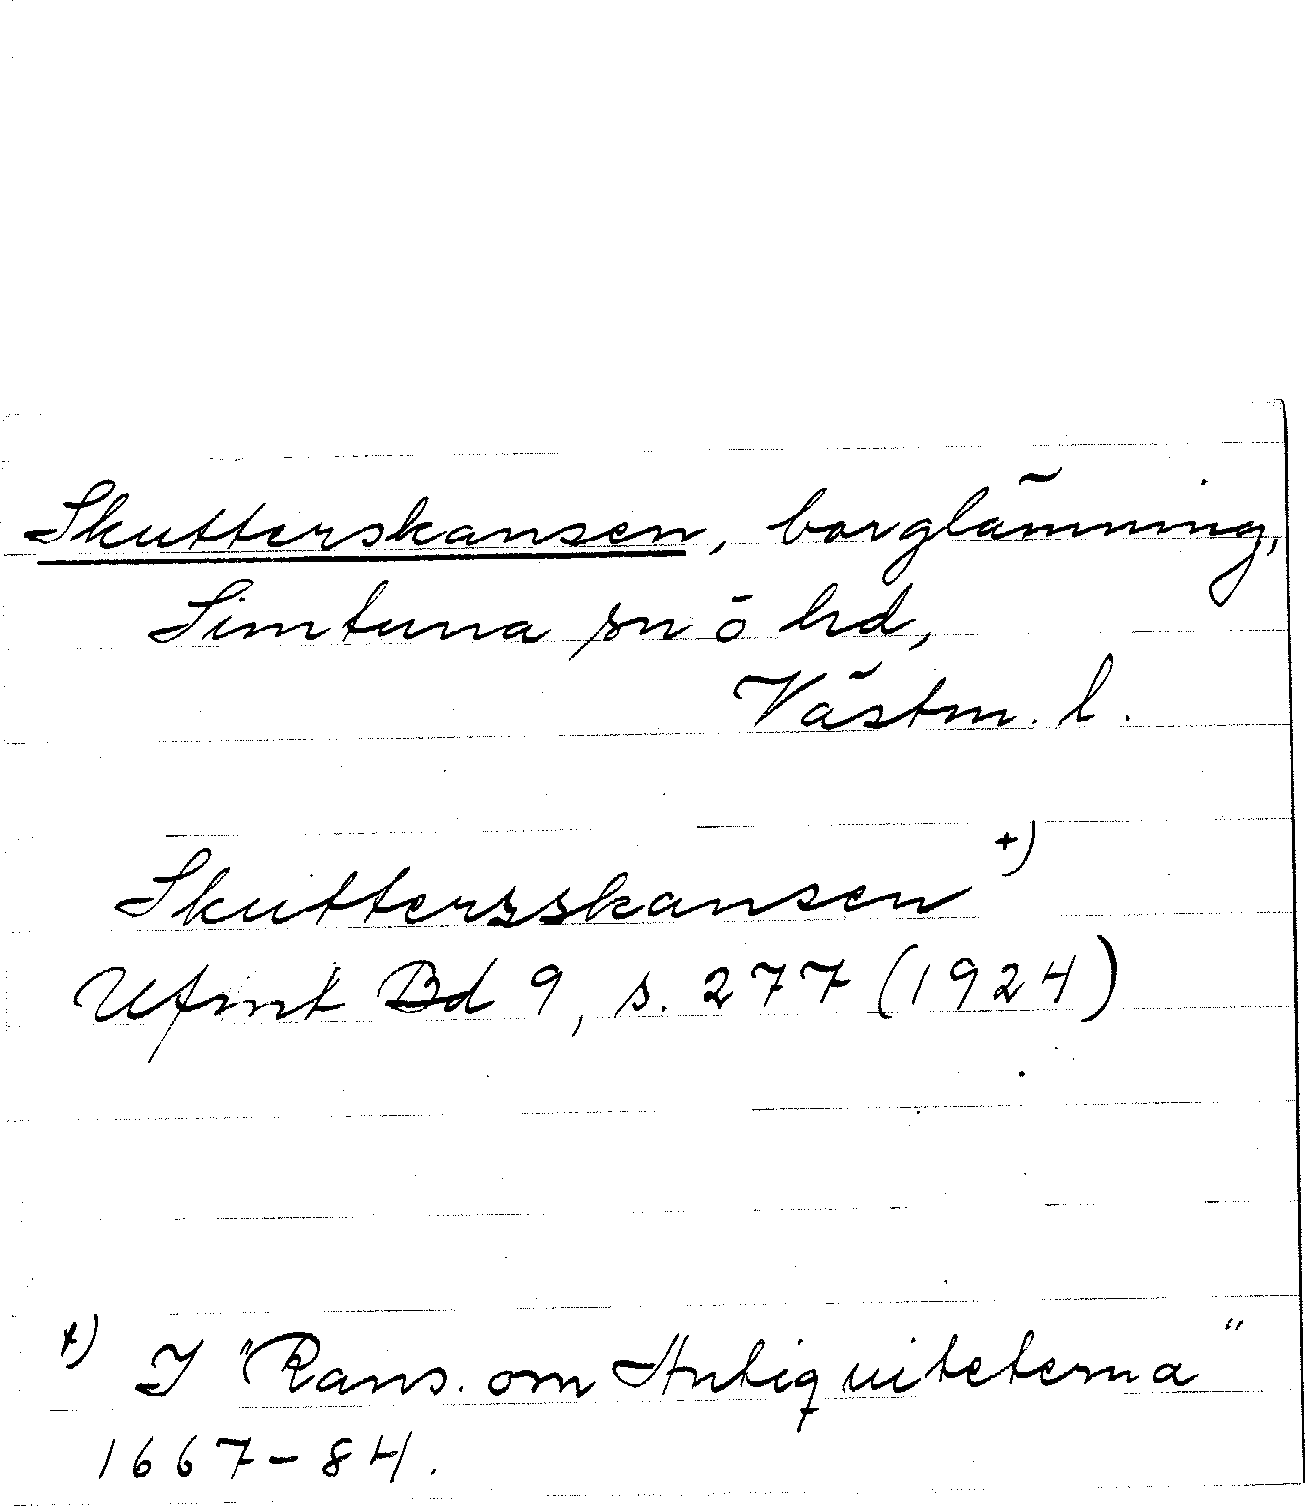 Skutterskansen, borglämning,
Simtuna sn ō hd,
Västm. l.
Skuttersskansen +)
Ufmt Bd 9, s. 277 (1924)
+) I "Rans. om Antiquiteterna"
1667-84.